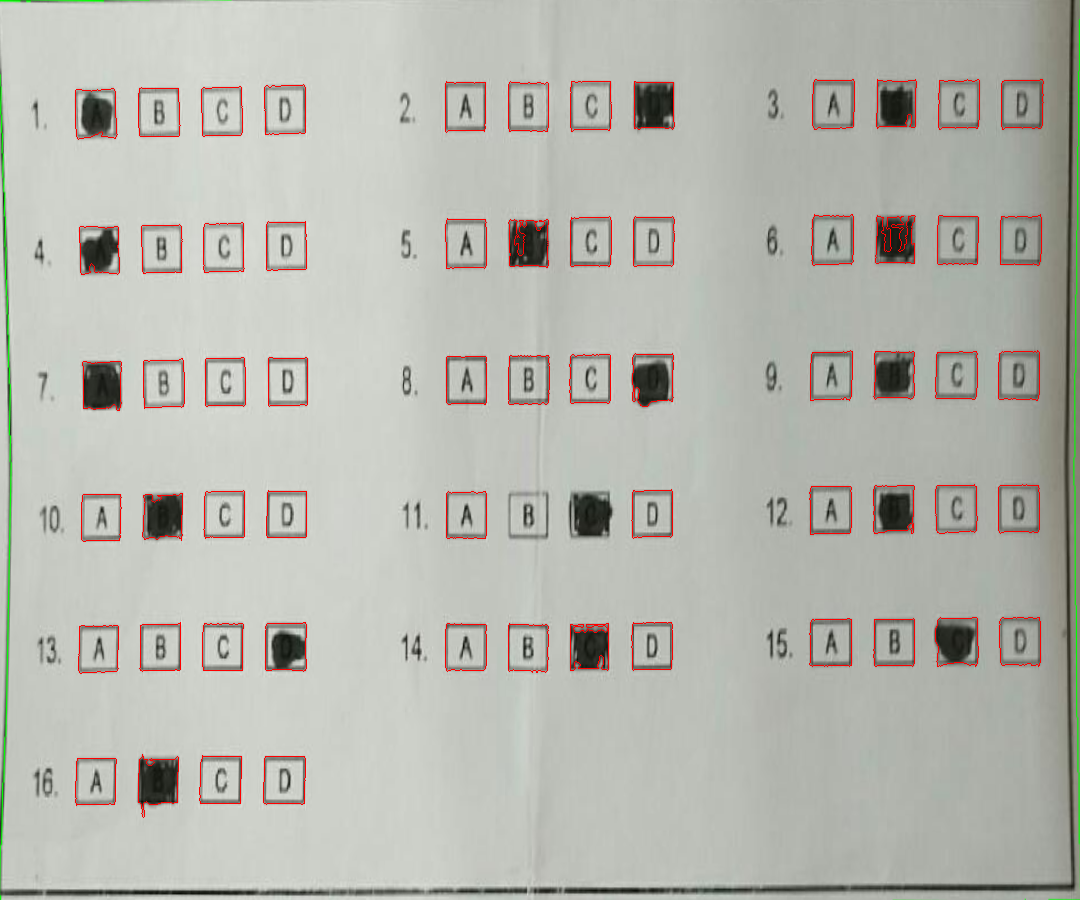 1. A B C D 2. A B C D 3. A C D
4. A B C D 5. A C D 6. A C D
7. A B C D 8. A B C D 9. A B C D
10. A B C D 11. A B C D 12. A B C D
13. A B C D 14. A B C D 15. A B C D
16. A B C D